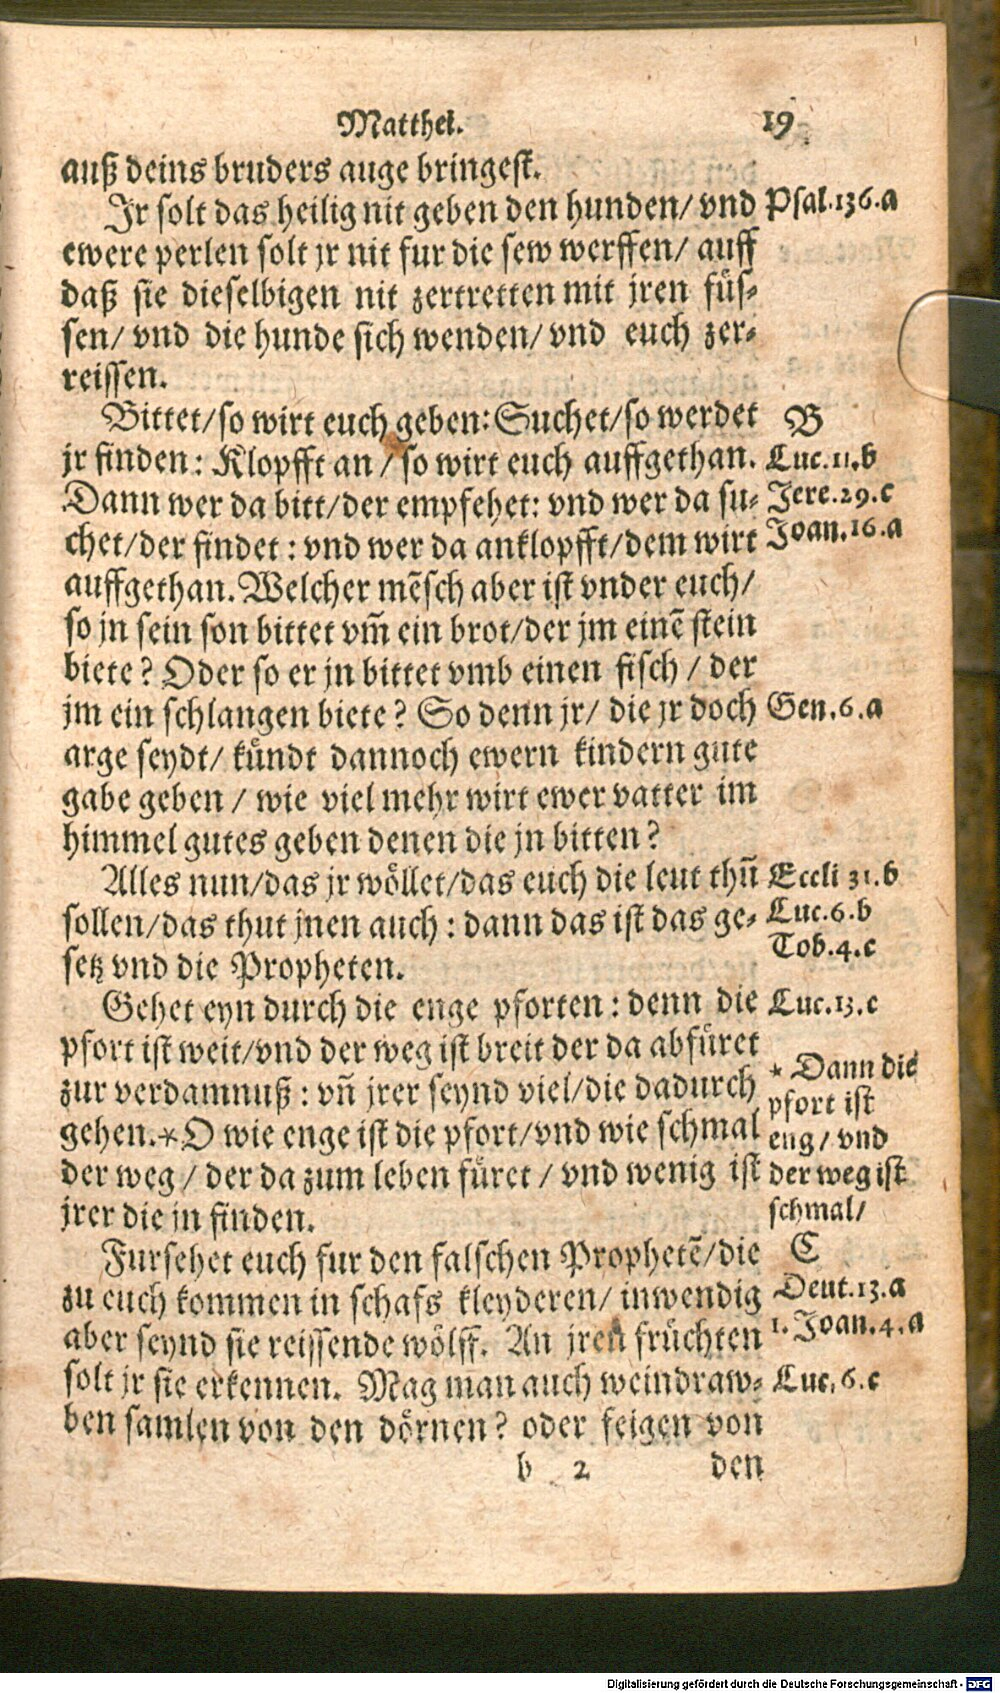 Matthei.
19
auß deins bruders auge bringest.
Jr solt das heilig nit geben den hunden/ vnd
ewere perlen solt jr nit fur die sew werffen/ auff
daß sie dieselbigen nit zertretten mit jren füs⸗
sen/ vnd die hunde sich wenden/ vnd euch zer⸗
reissen.
Bittet/so wirt euch geben: Suchet/so werdet
jr finden: Klopfft an /so wirt euch auffgethan.
Dann wer da bitt/der empfehet: vnd wer da su⸗
chet/der findet: vnd wer da anklopfft/dem wirt
auffgethan. Welcher mēsch aber ist vnder euch/
so jn sein son bittet vm̄ ein brot/der jm einē stein
biete? Oder so er jn bittet vmb einen fisch / der
jm ein schlangen biete? So denn jr/ die jr doch
arge seydt/ kündt dannoch ewern kindern gute
gabe geben / wie viel mehr wirt ewer vatter im
himmel gutes geben denen die jn bitten?
Alles nun/das jr wöllet/das euch die leut thūn
sollen/das thut jnen auch: dann das ist das ge⸗
setz vnd die Propheten.
Gehet eyn durch die enge pforten: denn die
pfort ist weit/vnd der weg ist breit der da abfüret
zur verdamnuß: vn̄ jrer seynd viel/die dadurch
gehen.* O wie enge ist die pfort/vnd wie schmal
der weg / der da zum leben füret / vnd wenig ist
jrer die jn finden.
Fursehet euch fur den falschen Prophetē/die
zu euch kommen in schafs kleyderen/ inwendig
aber seynd sie reissende wölff. An jren früchten
solt jr sie erkennen. Mag man auch weindraw⸗
ben samlen von den dörnen? oder feigen von
b 2
den
Psal.136.a
B
Luc.11.b
Jere.29.c
Joan.16.a
Gen.6.a
Eccli 31.b
Luc.6.b
Tob.4.c
Luc.13.c
* Dann die
pfort ist
eng/ vnd
der weg ist
schmal/
C
Deut.13.a
1. Joan.4.a
Luc.6.c
Digitalisierung gefördert durch die Deutsche Forschungsgemeinschaft - DFG